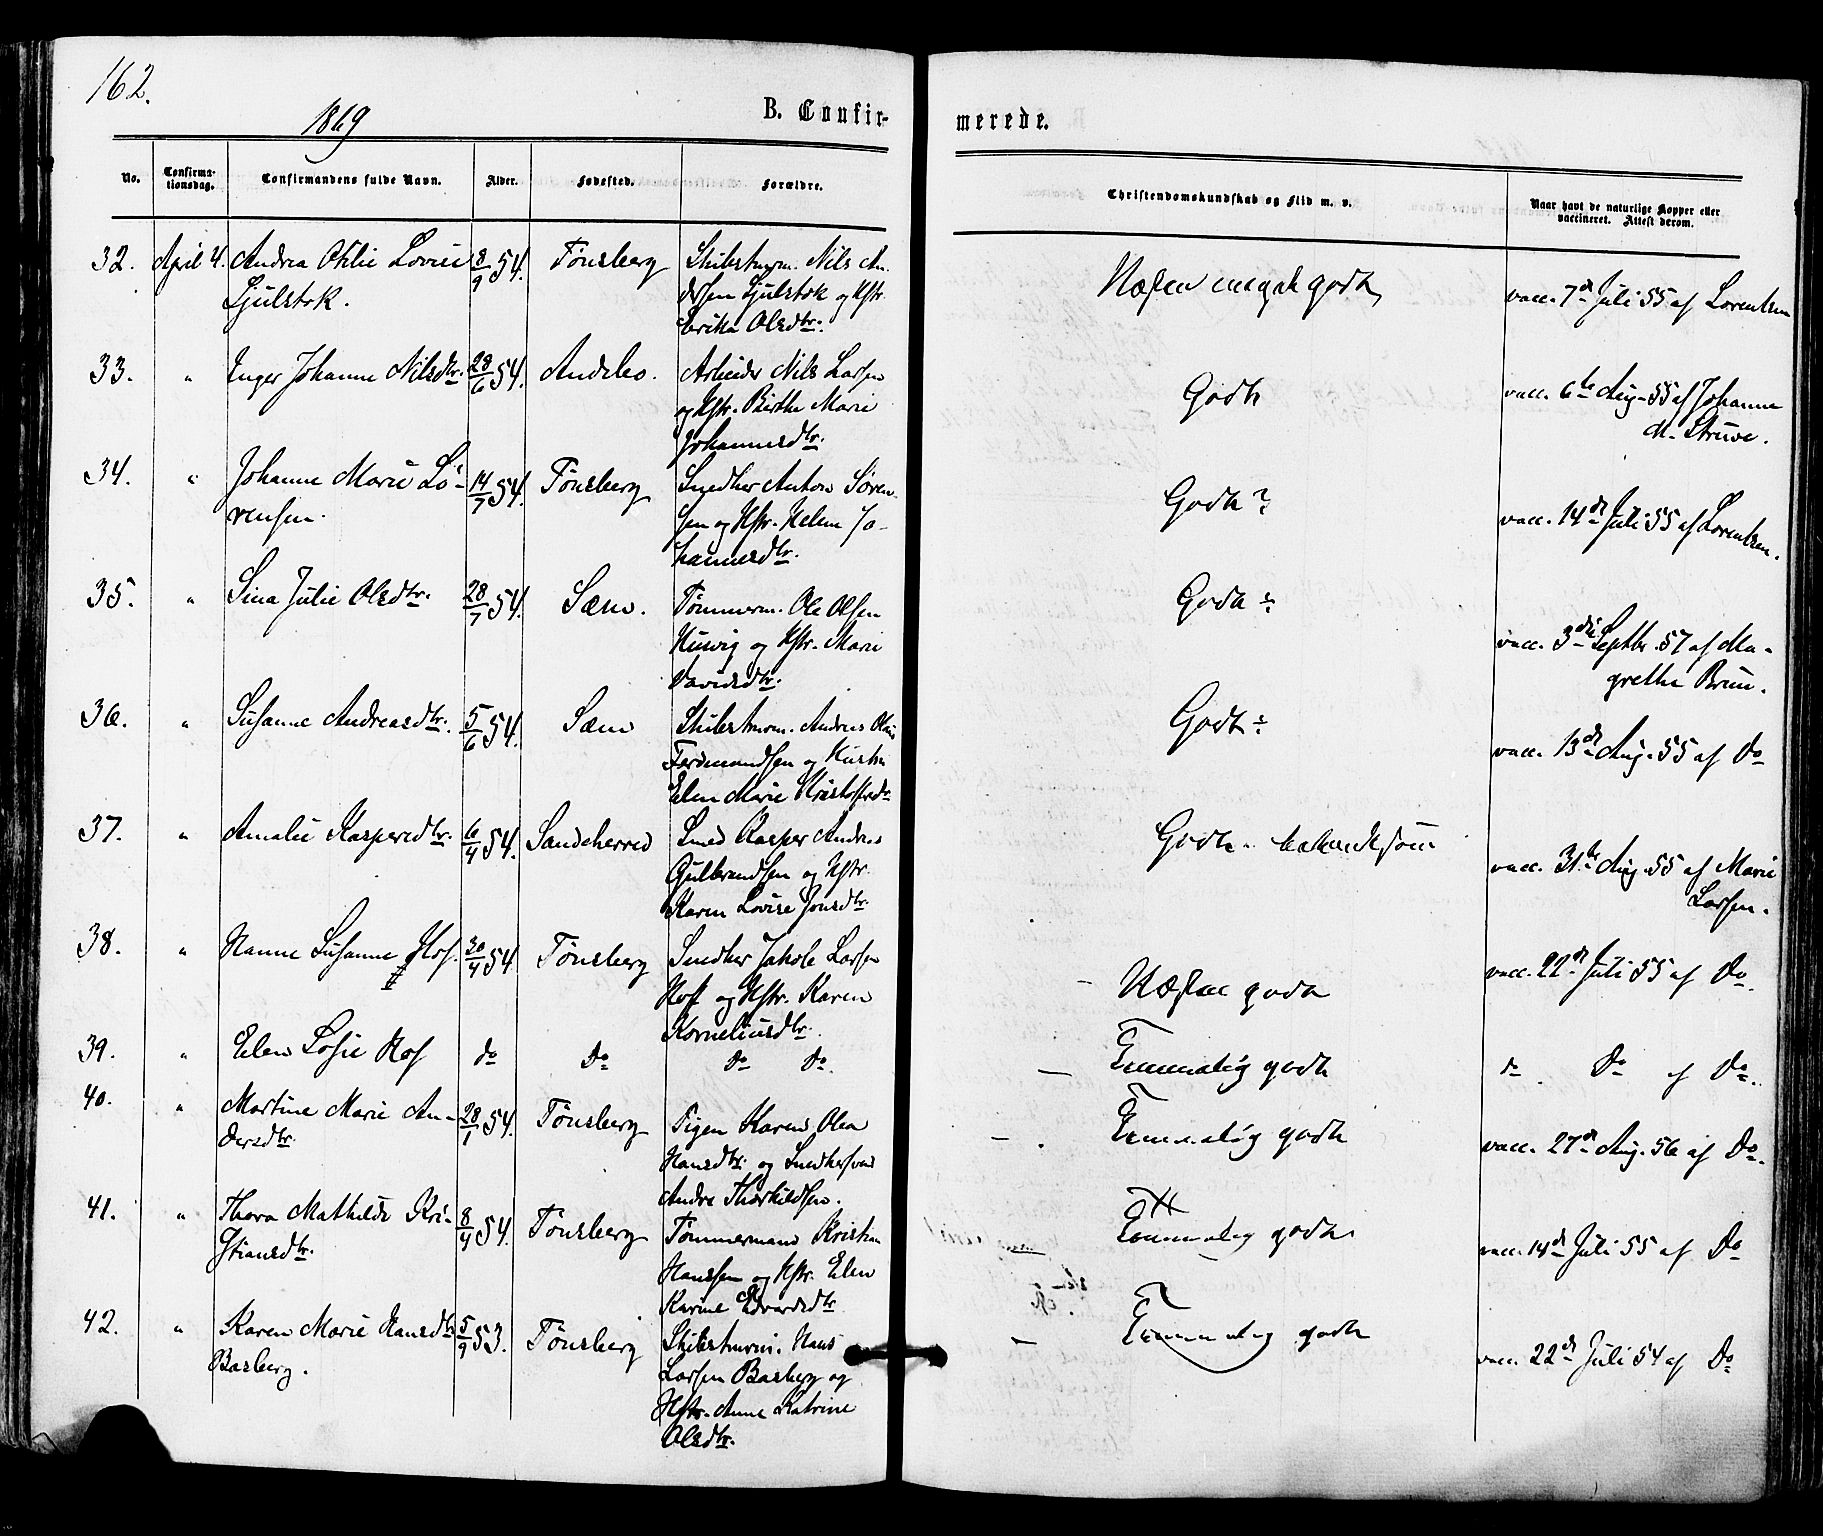 162.
1869
B. Confir-
merede.
No.
Confirma-
tionsdag.
Confirmandens fulde Navn.
Alder.
Fødested.
Forældre.
Christendomskundskab og Flid m. v.
Naar havt de naturlige Kopper eller
vaccineret. Attest derom.
32. April 4. Andrea Otilie Lovise 8/9 54. Tønsberg Skibstmrm. Nils An-
Sjulstok. dersen Sjulstok og Hstr.
Olsdtr.
Næsten meget godt
vacc. 7de Juli 55 af Lorentzen
33. " Inger Johanne Nilsdtr. 28/6 54. Andebo. Arbeider Nils Larsen
og Hstr. Birthe Marie
Johannesdtr.
Godt
vacc. 6te Aug. 55 af Johanne
M. Struve.
34. " Johanne Marie Sö- 14/7 54. Tønsberg Snedker Anton Søren-
rensen. sen og Hstr. Helene Jo-
hannesdtr.
Godt?
vacc. 14de Juli 55 af Lorentzen.
35. " Sina Julie Olsdtr. 28/7 54. Sæm. Tømmerm. Ole Olsen
og Hstr. Marie
Davidsdtr.
Godt
vacc. 3die Septbr. 57 af Ma-
grethe Brun.
36. " Susanne Andreasdtr. 5/6 54. Sæm Skibstmrm. Andreas
Ferdinandsen og Hustru
Elen Marie
Godt
vacc. 13de Aug. 55 af Do
37. " Amalie Kaspersdtr. 6/4 54. Sandeherred Smed Kasper Andreas
Gulbrandsen og Hstr.
Karen Lovise Jonsdtr.
Godt.
vacc. 31te Aug. 55 af Marie
Larsen.
38. " Hanne Susanne Hof. 30/4 54 Tønsberg Snedker Jakob Larsen
Hof og Hstr. Karen
Korneliusdtr.
- Næsten godt
vacc. 22de Juli 55 af Do.
39. " Elen Sofie Hof do Do Do Do.
- Temmelig godt
do. Do af Do.
40. " Martine Marie An- 28/1 54. Tønsberg Pigen Karen Olea
dersdtr. Hansdtr. og Snedkersvend
Andr. Thorkildsen.
- . Temmelig godt
vacc. 27de Aug. 56 af Do.
41. " Thora Mathilde Kri- 8/4 54. Tønsberg Tømmermand Kristian
stiansdtr. Hanssen og Hstr. Elen
Karine Edvardsdtr
Temmelig godt
vacc. 14de Juli 55 af Do
42. " Karen Marie Hansdtr 5/9 53. Tønsberg Skibstmrm. Hans
Basberg. Larsen Basberg og
Hstr. Anne Katrine
Olsdtr.
- Temmelig godt
vacc. 22de Juli 54 af Do